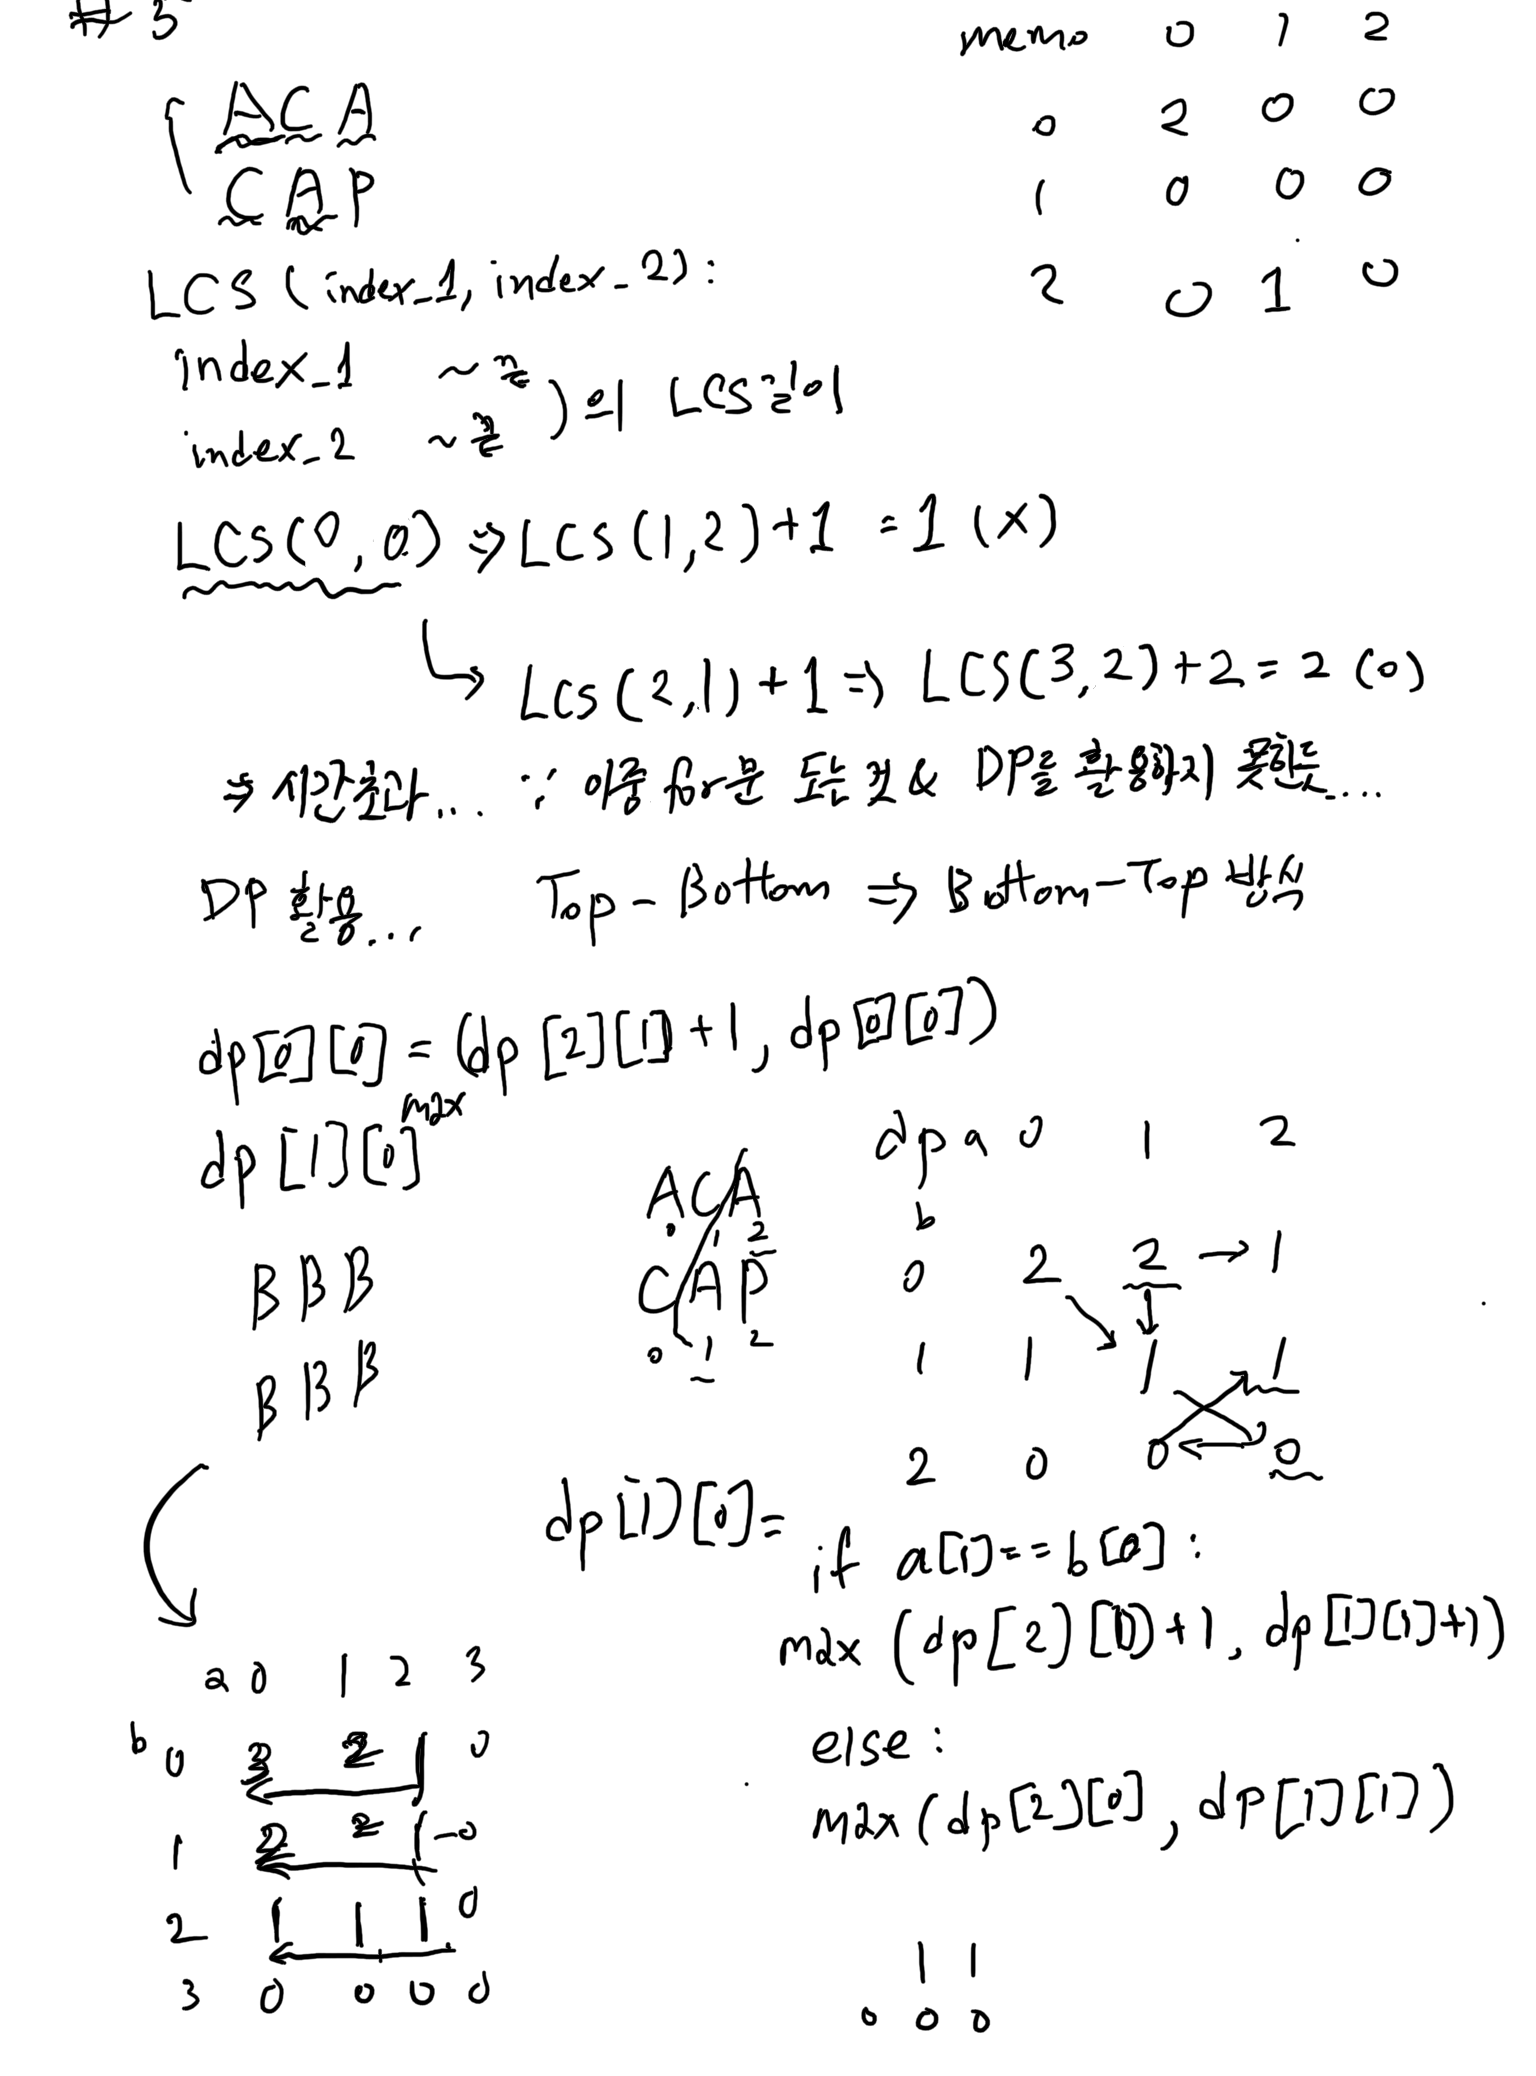 # 3
memo 0 1 2
0 2 0 0
1 0 0 0
2 0 1 0
ACA
CAP
LCS (index_1, index_2):
index_1 ~ 끝
index_2 ~ 끝
)의 LCS길이
LCS(0,0) ⇒ LCS(1,2)+1 = 1 (x)
↳ LCS(2,1)+1 ⇒ LCS(3,2)+2 = 2 (o)
⇒ 시간초과... ∵ 이중 for문 도는 것 & DP를 활용하지 못한듯....
DP 활용... Top-Bottom ⇒ Bottom-Top 방식
dp[0][0] = (dp[2][1]+1, dp[0][0])
max
dp[1][0]
ACA
0 1 2
CAP
0 1 2
dp a 0 1 2
b
0 2 2 → 1
1 1 1 1
2 0 0 0
BBB
BBB
dp[1][0]=
if a[1]==b[0]:
max (dp[2][1]+1, dp[1][1]+1)
else:
max(dp[2][0], dp[1][1])
a 0 1 2 3
b 0 3 2 1 0
1 2 2 1 0
2 1 1 1 0
3 0 0 0 0
1 1
0 0 0